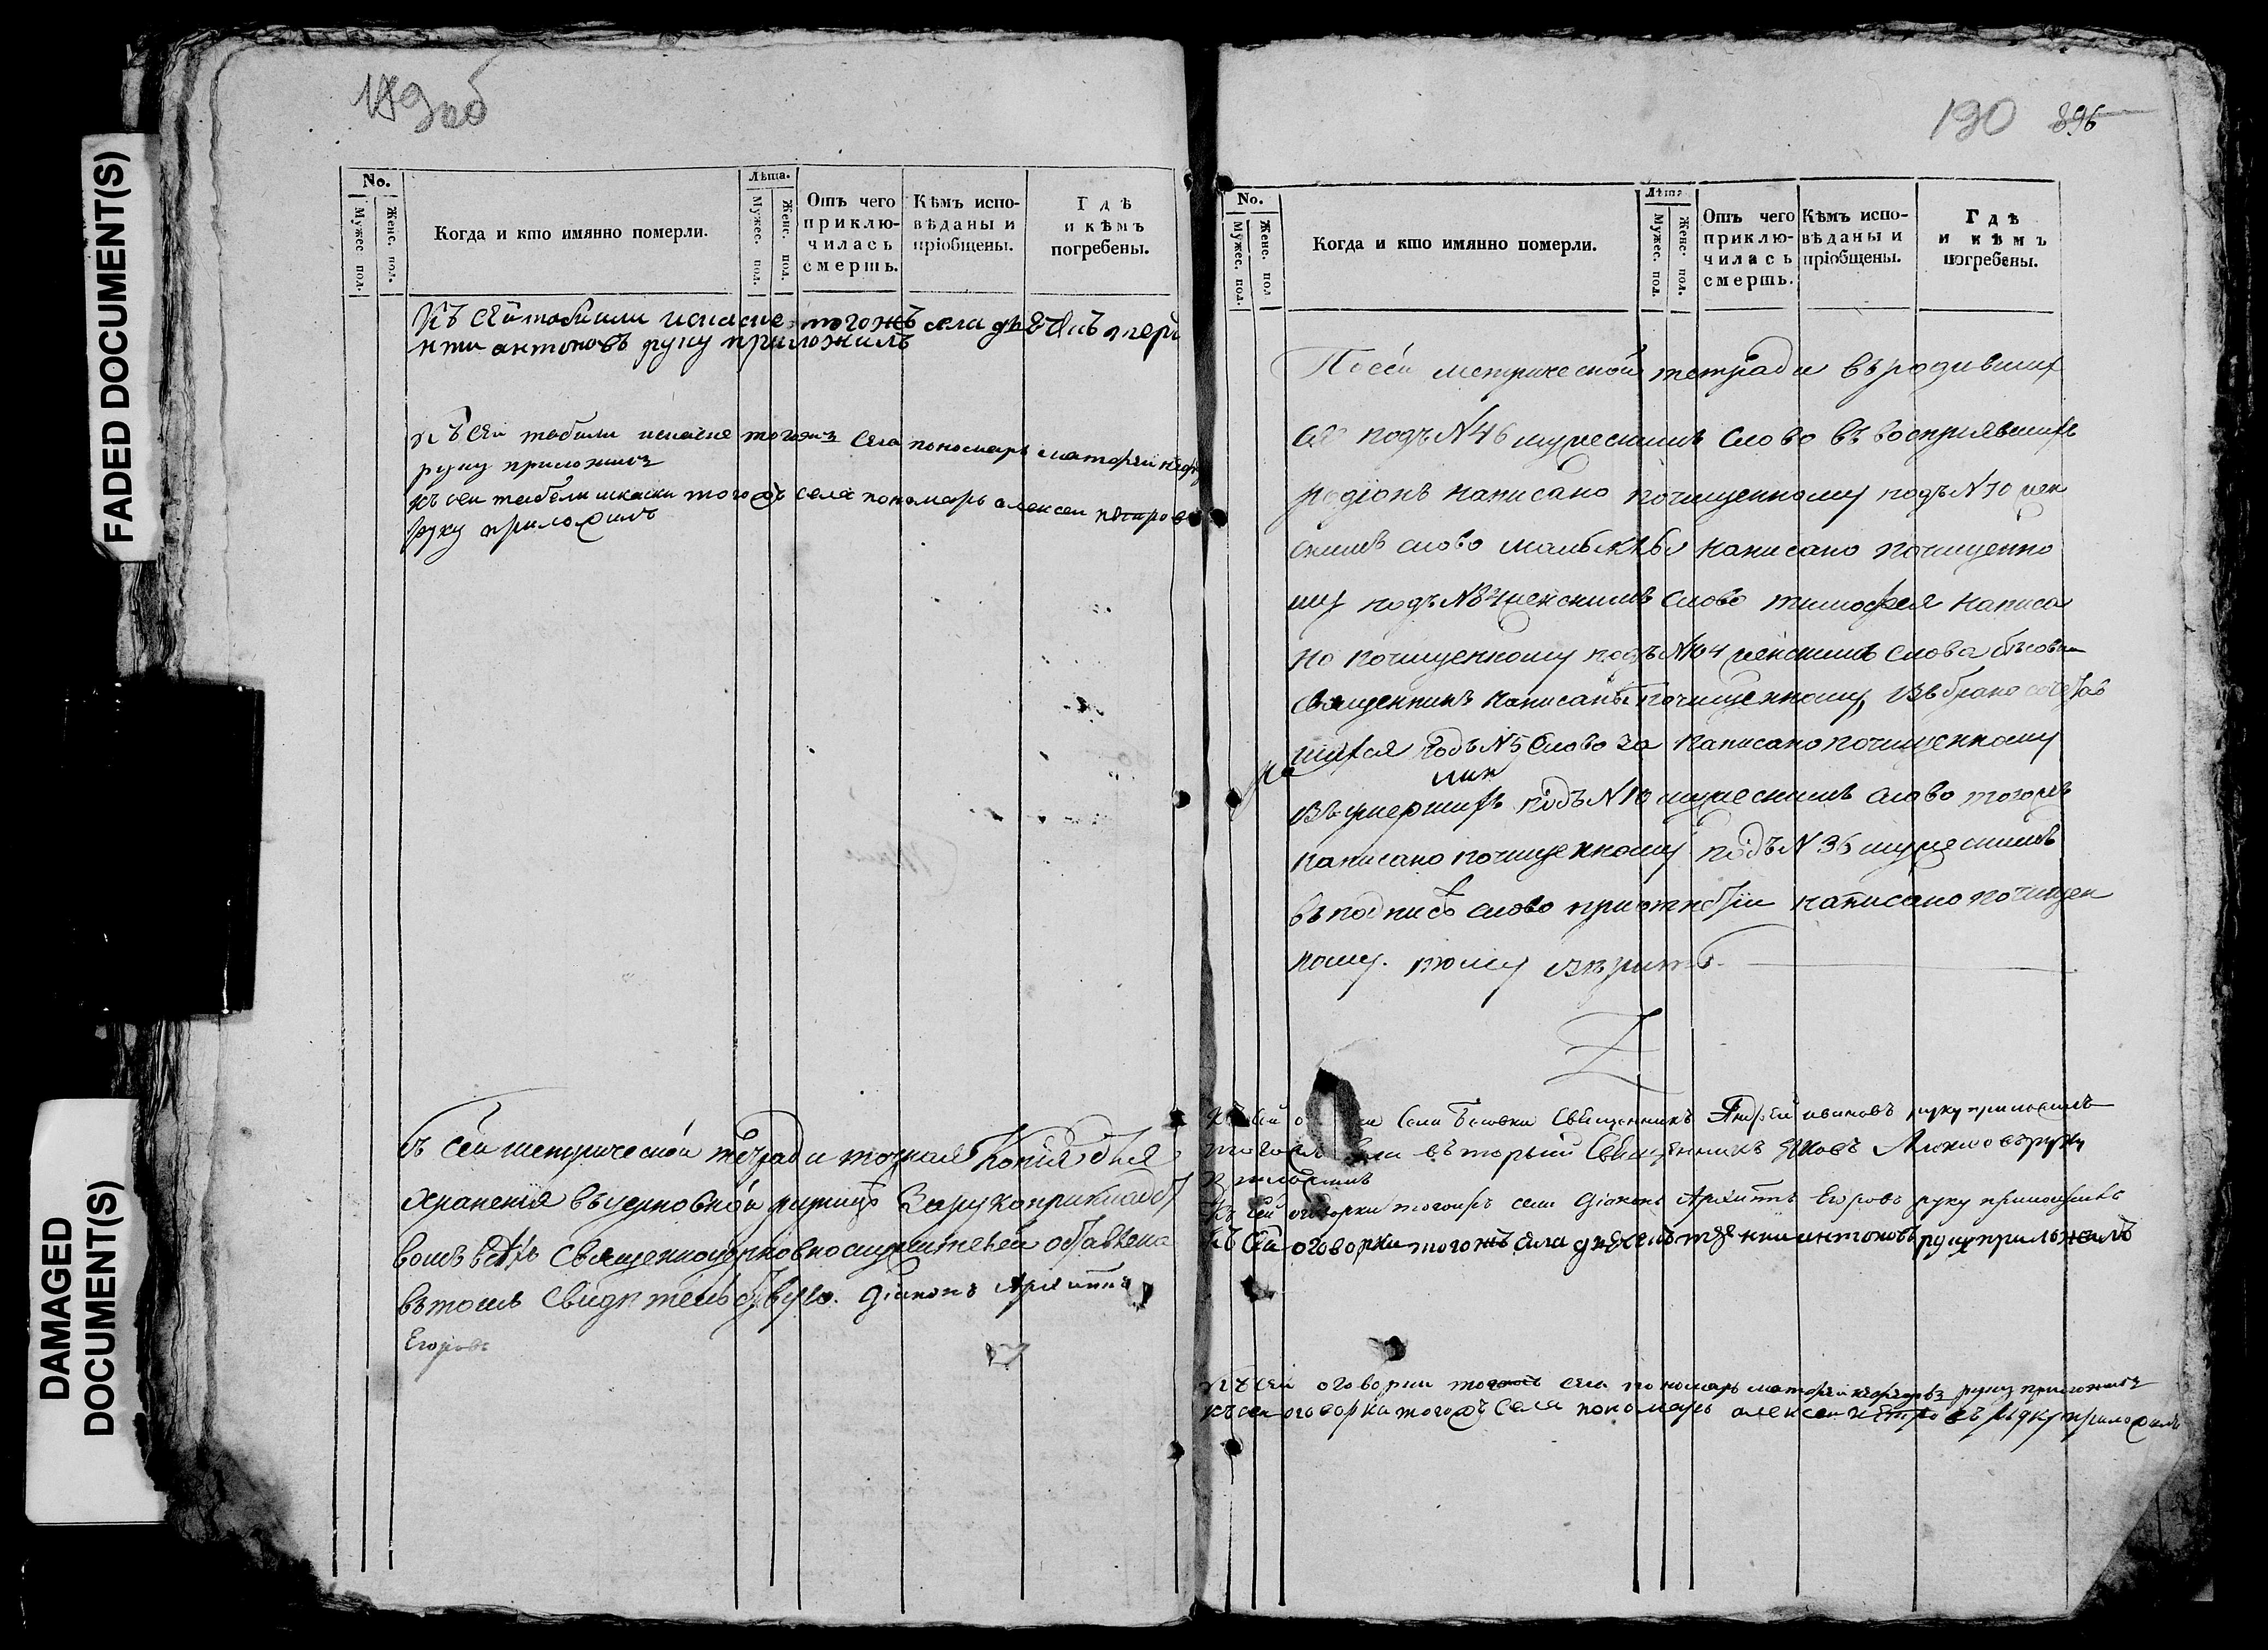 FADED DOCUMENT(S)
DAMAGED
DOCUMENT(S)
189 об
No.
Мужес. пол.
Женс. пол.
Когда и кто имянно померли.
Лѣта.
Мужес. пол.
Женс. пол.
Отъ чего
приклю-
чилась
смерть.
Кѣмъ испо-
вѣданы и
прiобщены.
Гдѣ
и кѣмъ
погребены.
Къ сей табели тогожъ села
антоновъ руку приложилъ
Къ сей табели тогожъ села пономарь матфей
руку приложилъ
къ сей табели тогожъ села пономарь алексеи петровъ
руку приложилъ
съ сей метрической тетради точная копія для
храненія въ церковной ризницѣ за рукоприкладст
вомъ всѣхъ священноцерковнослужителей оставлена
въ томъ свидѣтельствую. діаконъ Архиппъ
Егоровъ
190 896
No.
Мужес. пол.
Женс. пол
Когда и кто имянно померли.
Лѣта
Мужес. пол.
Женс. пол.
Отъ чего
приклю-
чилась
смерть.
Кѣмъ испо-
вѣданы и
прiобщены.
Гдѣ
и кѣмъ
погребены.
По сей метрической тетради въ родивших
ся подъ N 46 мужескимъ слово въ воспріявшихъ
родіонъ написано почищенному подъ N 70 жен
скимъ слово написано почищенно
му подъ N женскимъ слово тимофея написа
но почищенному подъ N 104 женскимъ слова бѣсовки
священникъ написаны почищенному, въ бракосочетав
шихся подъ N 5 слово за написано почищенному
въ умершихъ подъ N 10 мужескимъ слово тогожъ
написано почищенному подъ N 36 мужескимъ
въ подписѣ слово написано почищен
ному. тому вѣрить.
Къ сей села Бесовки священникъ Андрей ивановъ руку приложилъ
тогожъ вторый священникъ Яковъ руку
приложилъ
Къ сей оговорки тогожъ села діаконъ Архиппъ Егоровъ руку приложилъ
Къ сей оговорки тогожъ села антоновъ руку приложилъ
Къ сей оговорки тогожъ села пономарь матфей руку приложилъ
къ сей оговорки тогожъ села пономарь алексеи петровъ руку приложилъ